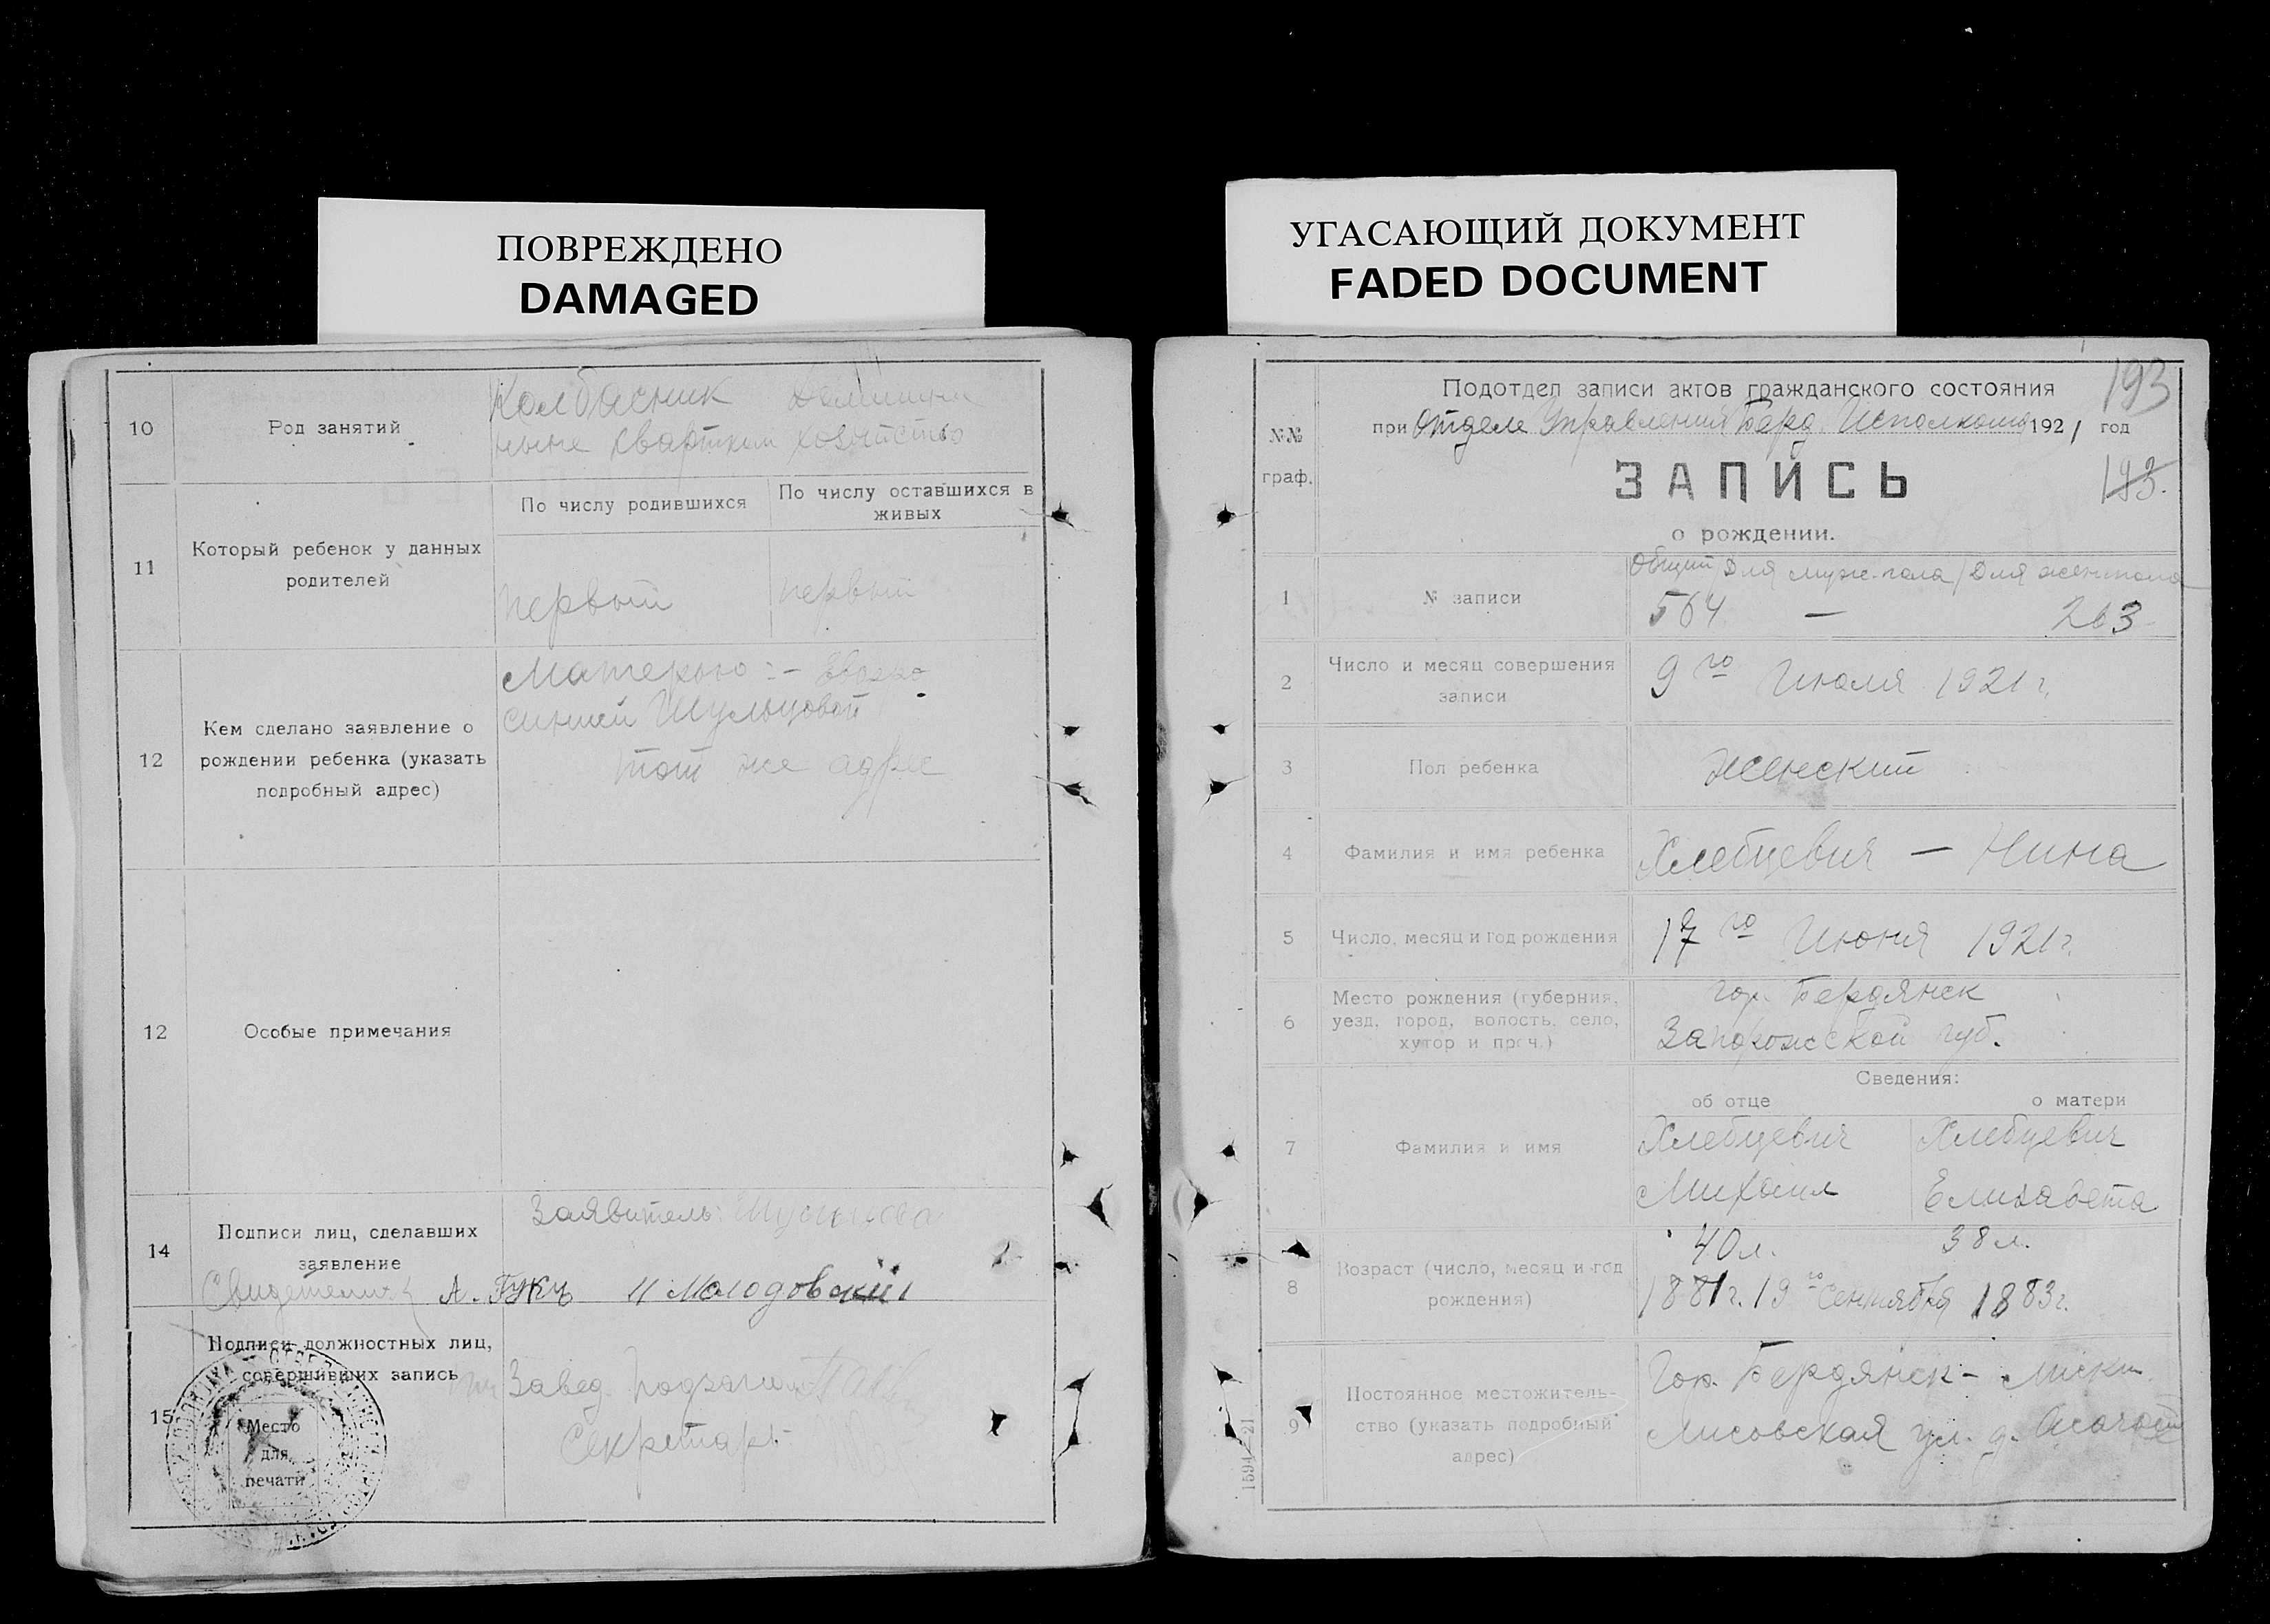 ПОВРЕЖДЕНО
DAMAGED
10
Род занятий
Колбасник
хозяйство
11
Который ребенок у данных
родителей
По числу родившихся
По числу оставшихся в
живых
первый
первый
12
Кем сделано заявление о
рождении ребенка (указать
подробный адрес)
Матерью :-
Шульцовой
тот же адрес
12
Особые примечания
14
Подписи лиц, сделавших
заявление
Заявитель:
Свидетели
А. Гукъ
Молодовский
15
Подписи должностных лиц,
совершивших запись
Место
для
печати
Завед.
Секретарь
УГАСАЮЩИЙ ДОКУМЕНТ
FADED DOCUMENT
193
№№
граф.
Подотдел записи актов гражданского состояния
при Отделе Управления Берд. Исполкома 1921 год
ЗАПИСЬ
193.
о рождении.
1
№ записи
Общий / Для муж. пола / Для жен. пола
564 — 263
2
Число и месяц совершения
записи
9го Июля 1921 г.
3
Пол ребенка
Женский
4
Фамилия и имя ребенка
Хлебцевич — Нина
5
Число, месяц и год рождения
го Июня 1921 г.
6
Место рождения (губерния,
уезд, город, волость, село,
хутор и проч.)
гор. Бердянск
Запорожской губ.
Сведения:
об отце
о матери
7
Фамилия и имя
Хлебцевич
Михаил
Хлебцевич
Елизавета
8
Возраст (число, месяц и год
рождения)
40 л. 38 л.
1881 г. 19го Сентября 1883 г.
9
Постоянное местожитель-
ство (указать подробный
адрес)
Гор. Бердянск -
Лисовская ул. д.
1594—21